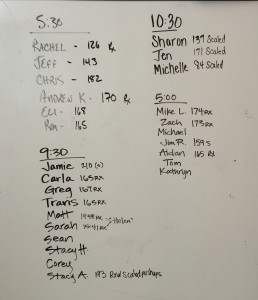 5:30
RACHEL - 126 Rx
JEFF - 143
CHRIS - 182
ANDREW K - 170 Rx
ELI - 168
Ron - 165
9:30
Jamie 210 (s)
Carla 165RX
Greg 167RX
Travis 165RX
Matt "Helen"
Sarah
Sean
Stacy H.
Corey
Stacy A. 193 Rxd Scaled pushups
10:30
Sharon 137 Scaled
Jen 171 Scaled
Michelle 84 Scaled
5:00
Mike L. 174RX
Zach 173RX
Michael
Jim R. 159 S
Aidan 165 Rx
Tom
Kathryn